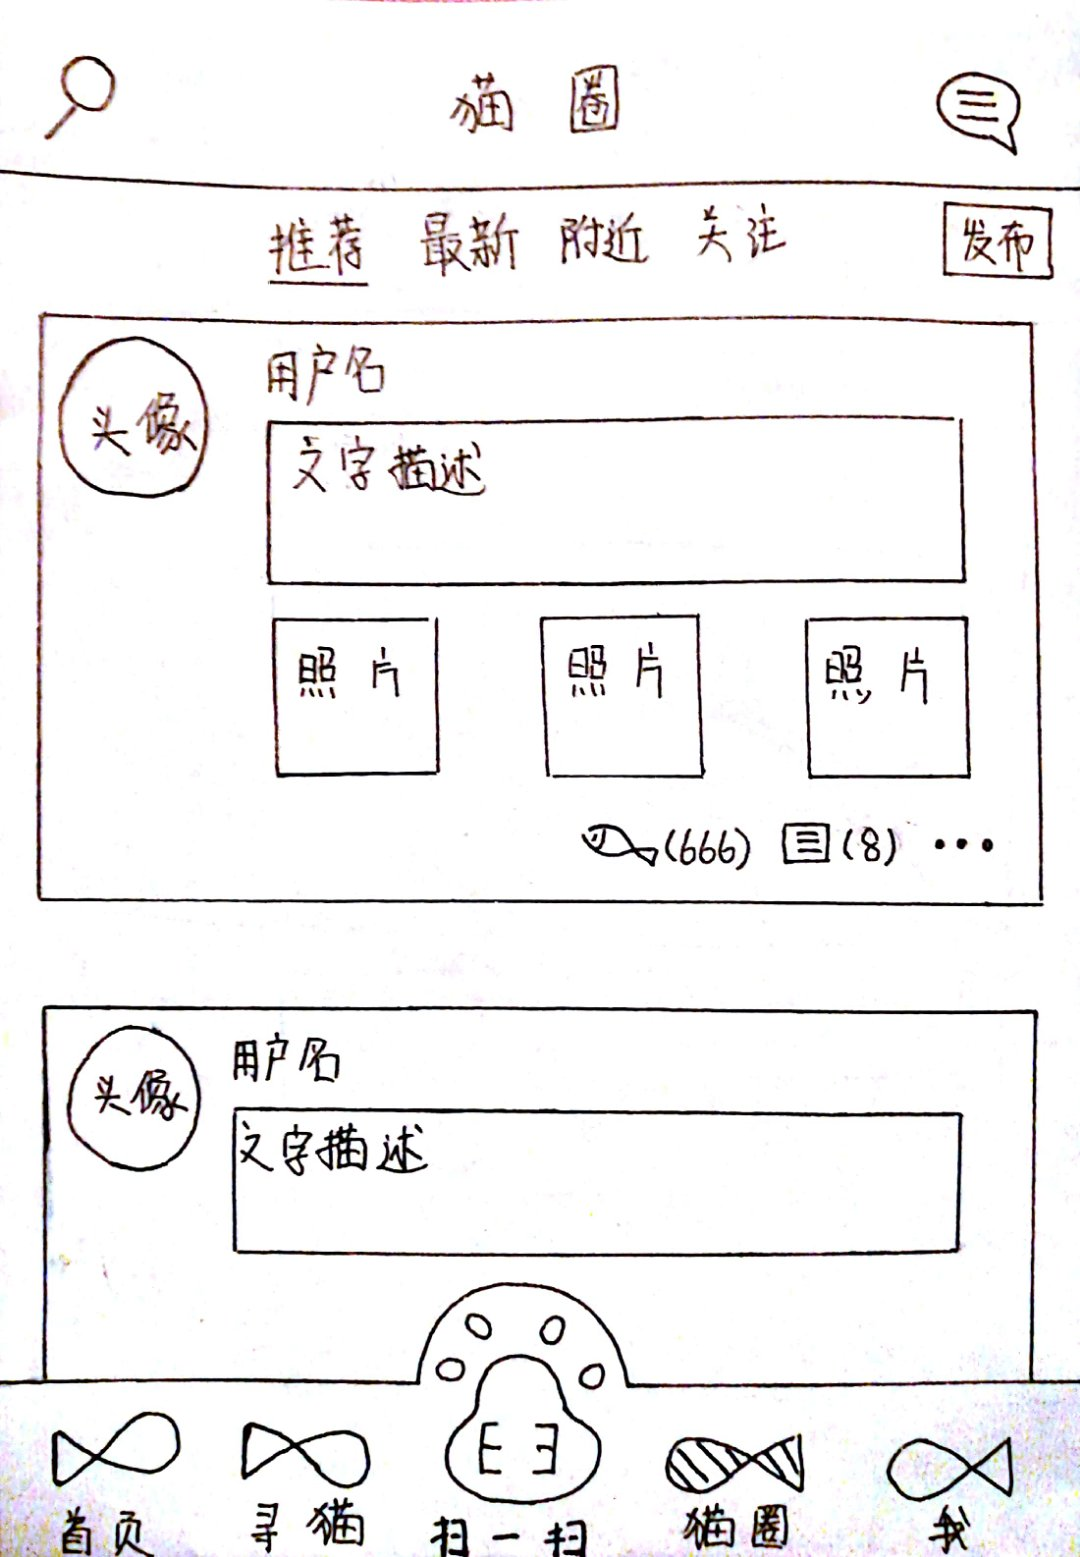 猫 圈
推荐 最新 附近 关注 发布
头像 用户名
文字描述
照片 照片 照片
(666) (8) •••
头像 用户名
文字描述
首页 寻猫 扫一扫 猫圈 我